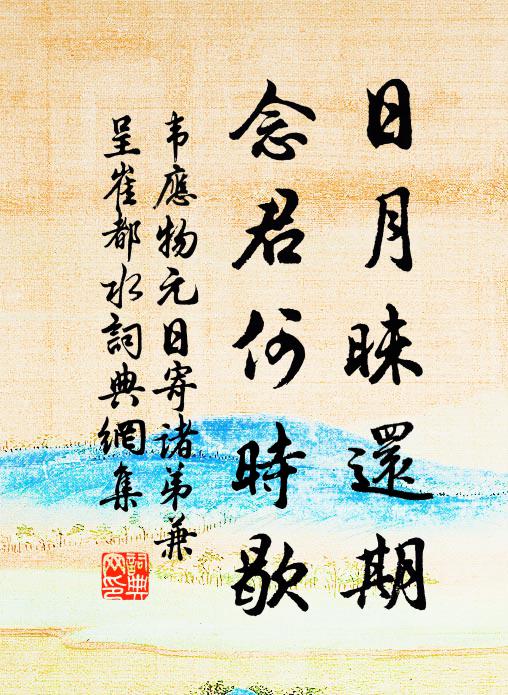 日月昧還期
念君何時歇
韦應物元日寄諸弟兼
呈崔都水詞典網集
詞典网印